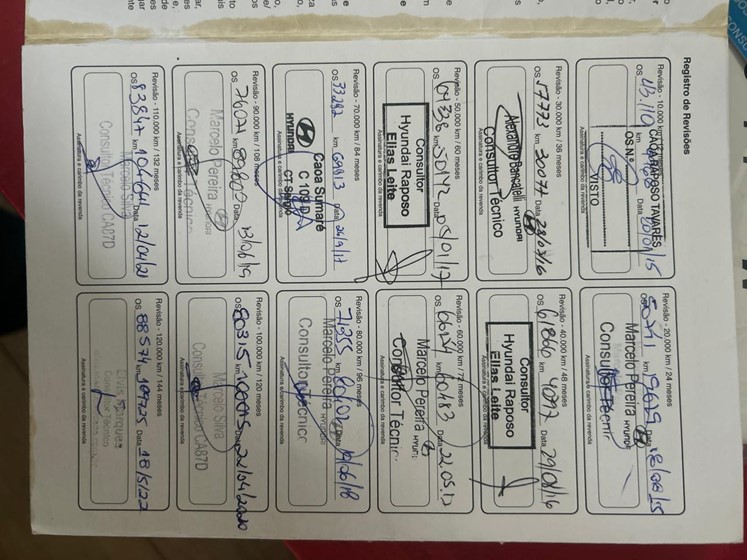 Registro de Revisões
Revisão - 10.000 km / 12 meses
CAOA RAPOSO TAVARES
OS Nº
VISTO
Assinatura e carimbo da revenda
Revisão - 20.000 km / 24 meses
Marcelo Pereira HYUNDAI
Consultor Técnir
Assinatura e carimbo da revenda
Revisão - 30.000 km / 36 meses
OS 57773 km 30071 Data 28/07/16
Alexandre Bancatelli HYUNDAI
Consultor Técnico
Assinatura e carimbo da revenda
Revisão - 40.000 km / 48 meses
OS 61866 km Data 29/08/16
Consultor
Hyundai Raposo
Elias Leite
Assinatura e carimbo da revenda
Revisão - 50.000 km / 60 meses
Consultor
Hyundai Raposo
Elias Leite
Assinatura e carimbo da revenda
Revisão - 60.000 km / 72 meses
km 60482 Data 22.05.17
Marcelo Pereira HYUNI
Consultor Técnic
Assinatura e carimbo da revenda
Revisão - 70.000 km / 84 meses
OS 33282 km Data
Caoa Sumaré
HYUNDAI
CT Sergio
Assinatura e carimbo da revenda
Revisão - 80.000 km / 96 meses
OS 71355 km Data 19/06/18
Marcelo Pereira Hyundai
Consultor Técnicr
Assinatura e carimbo da revenda
Revisão - 90.000 km / 108 meses
OS 76071 km Data 12/06/19
Marcelo Pereira
Consultor Técnico
Assinatura e carimbo da revenda
Revisão - 100.000 km / 120 meses
OS 80315 km 100015 Data 22/04/2020
Marcelo Silva
Consultor Técnico CA87D
Assinatura e carimbo da revenda
Revisão - 110.000 km / 132 meses
OS 83847 km 104664 Data 12/04/21
Marcelo Silva
Consultor Técnico CA87D
Assinatura e carimbo da revenda
Revisão - 120.000 km / 144 meses
OS 88574 km 109725 Data 18/5/22
Elvis Marques
Consultor Técnico
Assinatura e carimbo da revenda